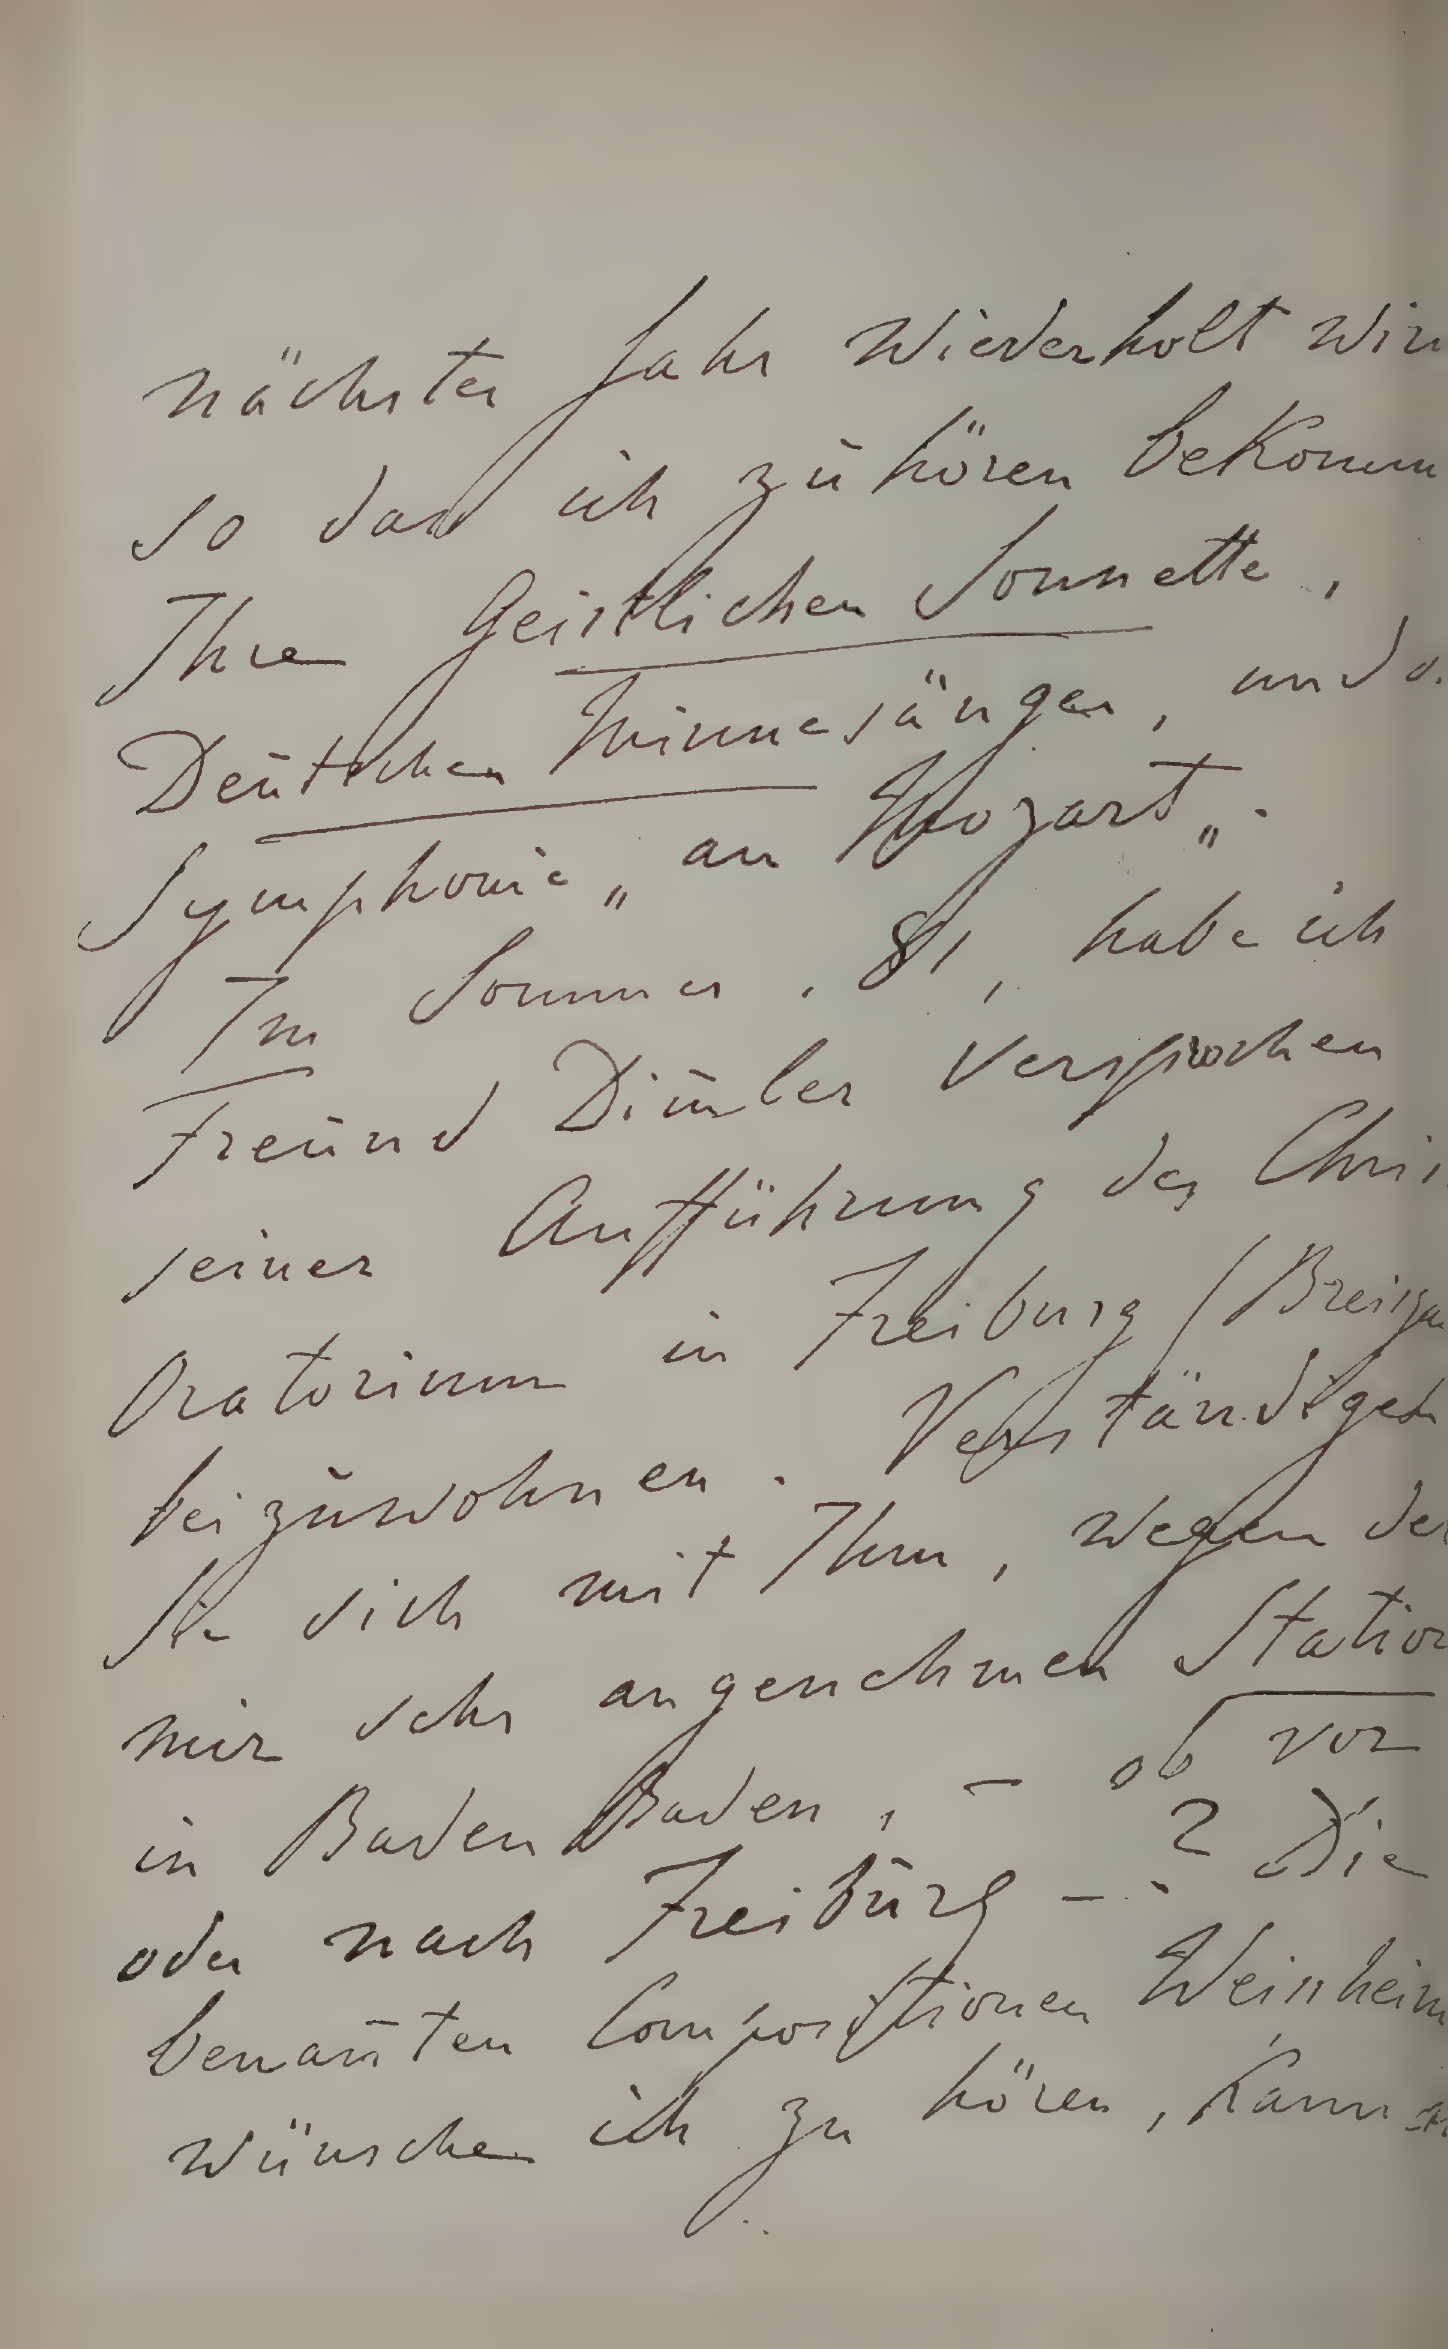 nächster Jahr wiederholt wir
so dass ich zu hören bekomm
Ihre Geistlichen Sonnette,
Deutschen Minnesänger, und
Symphonie „an Mozart„.
Im Sommer, 81, habe ich
Freund versprochen
seiner Aufführung des Chris
Oratorium in Freiburg /Breisgau
beizuwohnen. Verständigen
Sie sich mit Ihm, wegen der
mir sehr angenehmen Station
in Baden Baden, – ob vor
oder nach Freiburg –.? Die
benañten Compositionen Weinheim
wünsche ich zu hören, kann